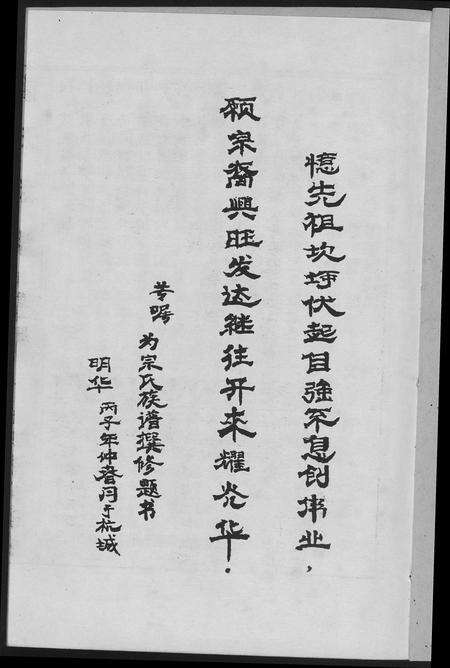 憶先祖坎坷伏起自強不息创伟业，
願宗裔興旺发达继往开来耀光华.
嘱 为宗氏族谱撰修题书
明华 丙子年仲春月于杭城